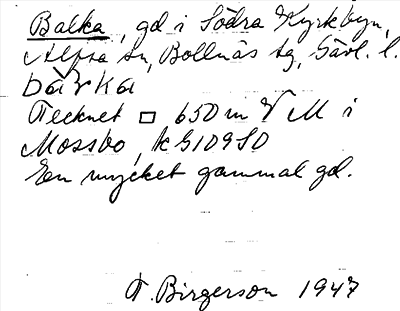 Balka, gd i Södra Kyrkbyn,
Alfta sn, Bollnäs tg, Gävl. l.
Tecknet □ 650 m V M i
Mossbo, k G109 SO
En mycket gammal gd.
T. Birgerson 1947